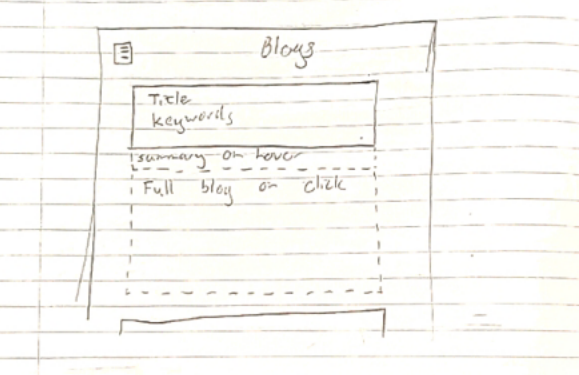 Blogs
Title
Keywords
summary on hover
Full blog on click